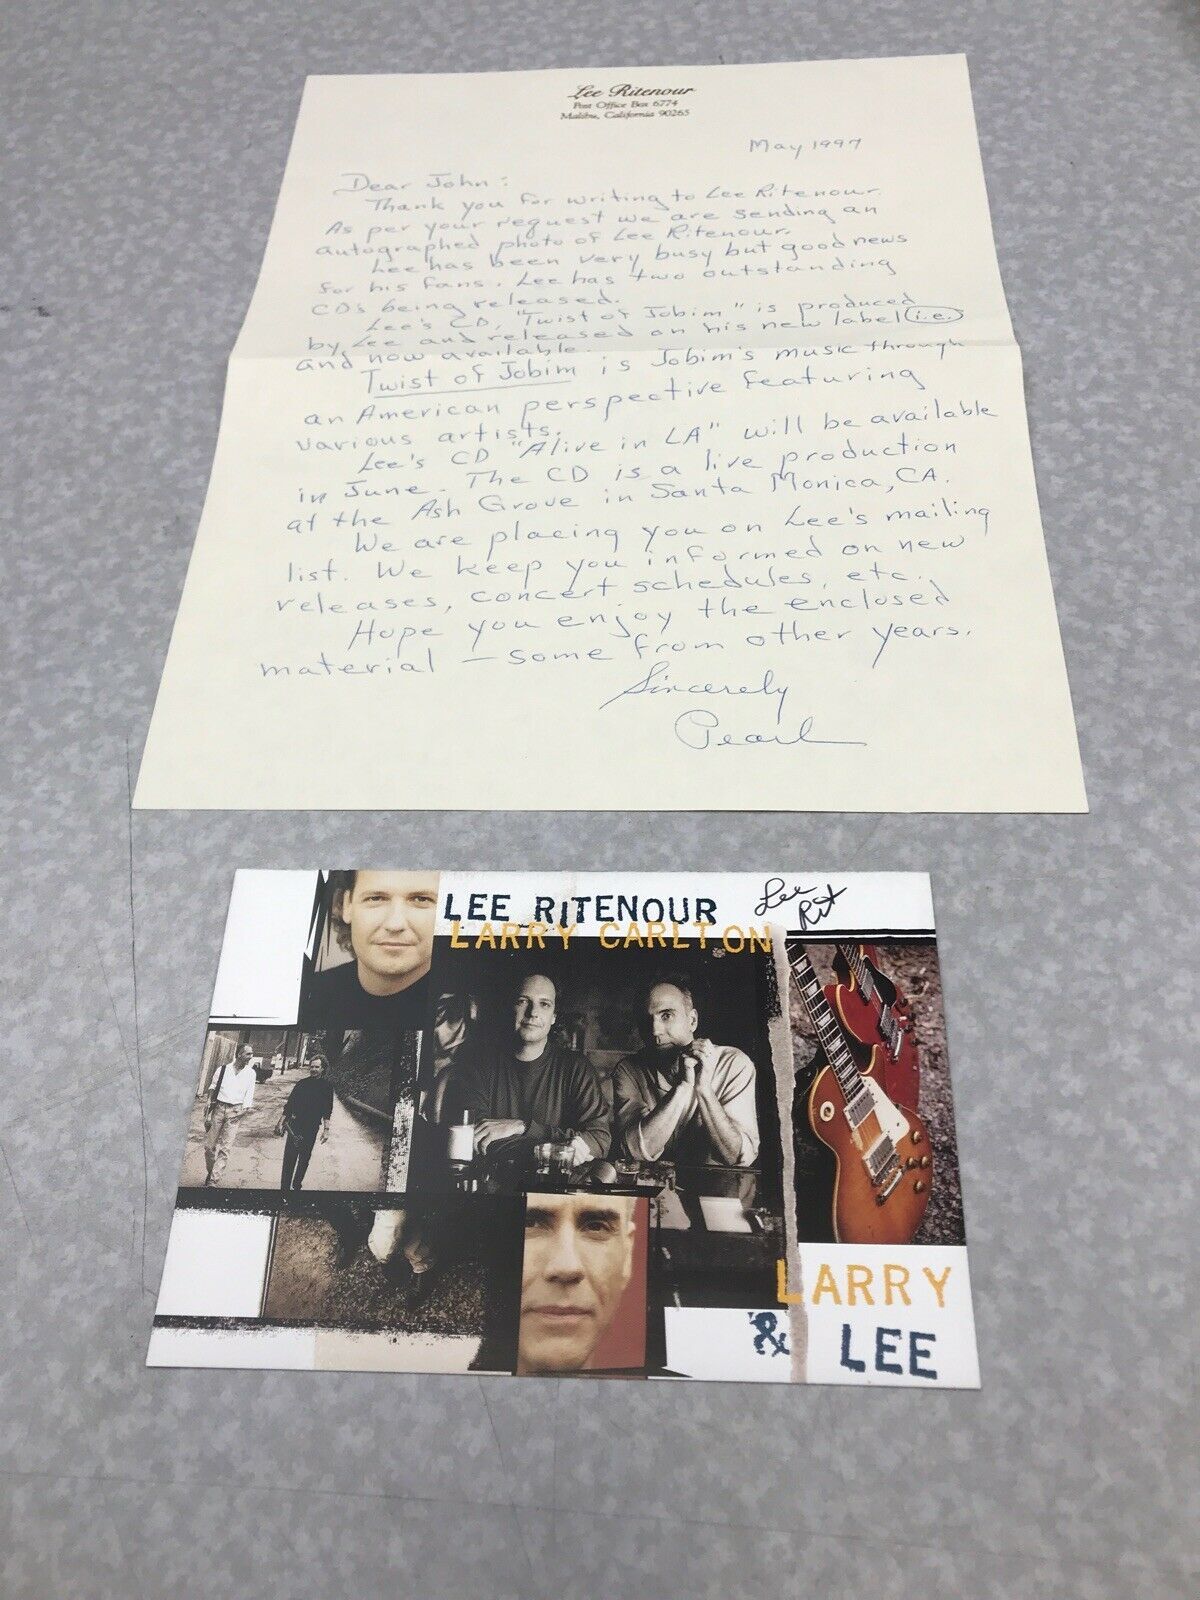 Lee Ritenour
Post Office Box 6774
Malibu, California 90265
May 1997
Dear John:
Thank you for writing to Lee Ritenour.
As per your request we are sending an
autographed photo of Lee Ritenour.
Lee has been very busy but good news
for his fans. Lee has two outstanding
CD's being released.
Lee's CD, "Twist of Jobim" is produced
by Lee and released on his new label i.e.
and now available.
Twist of Jobim is Jobim's music through
an American perspective featuring
various artists.
Lee's CD "Alive in LA" will be available
in June. The CD is a live production
at the Ash Grove in Santa Monica, CA.
We are placing you on Lee's mailing
list. We keep you informed on new
releases, concert schedules, etc.
Hope you enjoy the enclosed
material — some from other years.
Sincerely
Pearl
LEE RITENOUR
LARRY CARLTON
Lee
Rit
LARRY
& LEE